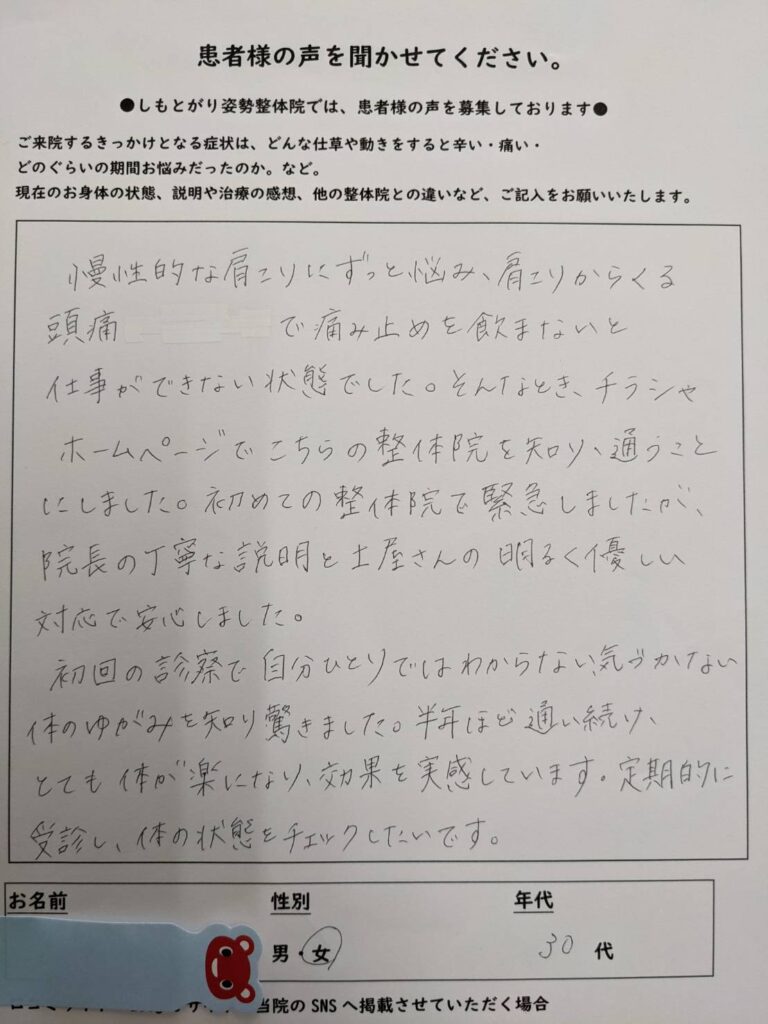 患者様の声を聞かせてください。
●しもとがり姿勢整体院では、患者様の声を募集しております●
ご来院するきっかけとなる症状は、どんな仕草や動きをすると辛い・痛い・
どのぐらいの期間お悩みだったのか。など。
現在のお身体の状態、説明や治療の感想、他の整体院との違いなど、ご記入をお願いいたします。
慢性的な肩こりにずっと悩み、肩こりからくる
頭痛 で痛み止めを飲まないと
仕事ができない状態でした。そんなとき、チラシや
ホームページでこちらの整体院を知り、通うこと
にしました。初めての整体院で緊急しましたが、
院長の丁寧な説明と土屋さんの明るく優しい
対応で安心しました。
初回の診察で自分ひとりではわからない、気づかない
体のゆがみを知り驚きました。半年ほど通い続け、
とても体が楽になり、効果を実感しています。定期的に
受診し、体の状態をチェックしたいです。
お名前 性別 年代
男・女 30 代
当院の SNS へ掲載させていただく場合